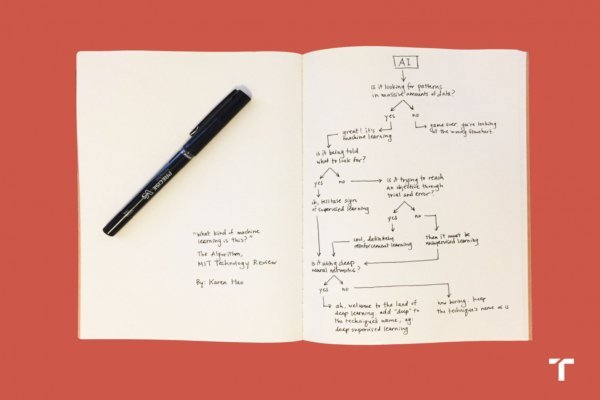 PRECISE V5
"What kind of machine
learning is this?"
The Algorithm,
MIT Technology Review
By: Karen Hao
AI
is it looking for patterns
in massive amounts of data?
yes
no
great! it's
machine learning
game over. you're looking
at the wrong flowchart.
is it being told
what to look for?
is it trying to reach
an objective through
trial and error?
yes
no
ah, telltale sign
of supervised learning
yes
no
cool, definitely
reinforcement learning
Then it must be
unsupervised learning
is it using deep
neural networks?
yes
no
ah, welcome to the land of
deep learning. add "deep" to
the technique's name, eg:
deep supervised learning
how boring. keep
the technique's name as is